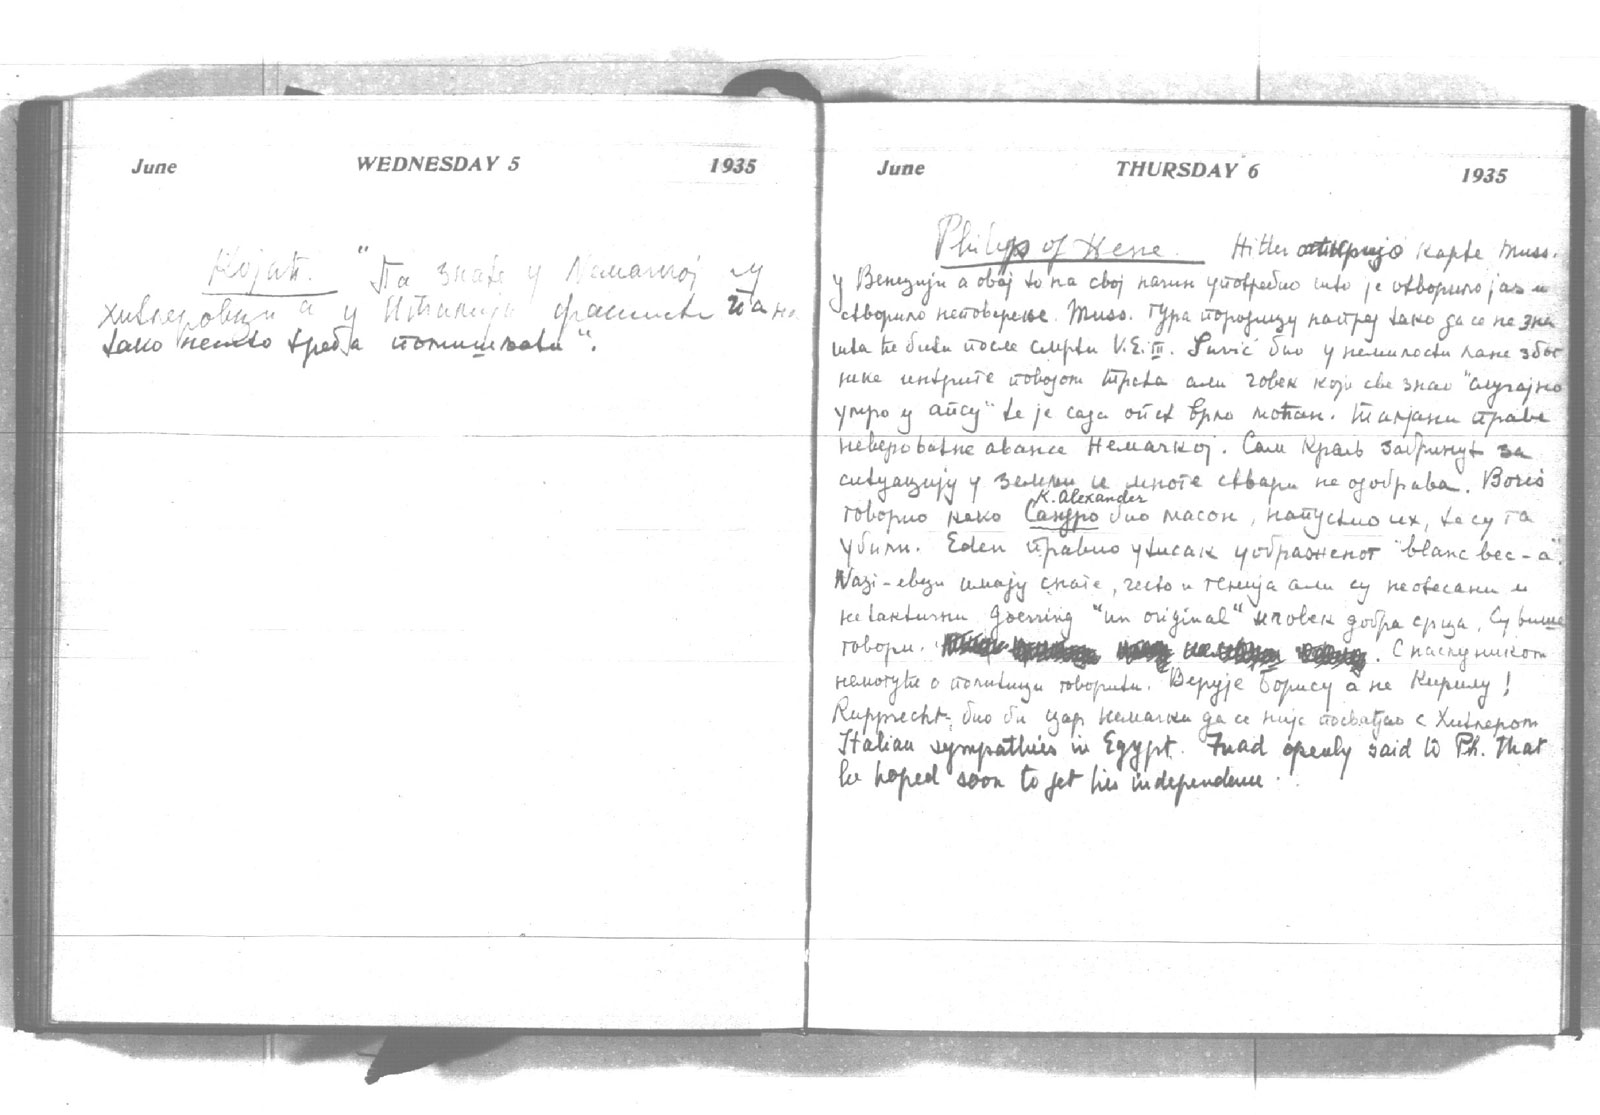 June WEDNESDAY 5 1935
Којић. "Па знате у Немачкој су
хитлеровци а у Италији фашисти па на
тако нешто треба помишљати".
June THURSDAY 6 1935
Philip of Hesse. Hitler открио карте Muss.
у Венецији а овај то на свој начин употребио што је отворило јаз и
створило неповерење. Muss. гура породицу напред тако да се не зна
шта ће бити после смрти V.E.III. Suvić био у немилости лане због
неке интриге поводом Трста али човек који све знао "случајно
умро у апсу" те је сада опет врло моћан. Талијани праве
невероватне авансе Немачкој. Сам Краљ забринут за
ситуацију у земљи и многе ствари не одобрава. Boris
K. Alexander
говорио како Сандро био масон, напустио их, те су га
убили. Eden правио утисак уображеног "blanc bec-а".
Nazi-евци имају снаге, често и генија али су неотесани и
нетактични. Goering "un original" човек добра срца. Сувише
говори. С наследником
немогуће о политици говорити. Верује Борису а не Кирилу!
Rupprecht био би цар Немачки да се није посвађао с Хитлером
Italian sympathies in Egypt. Fuad openly said to Ph. that
he hoped soon to get his independence.